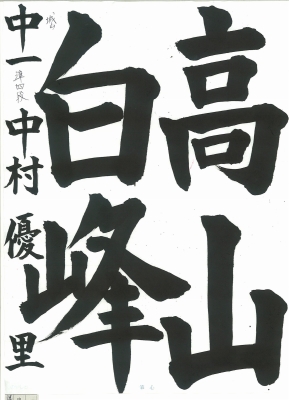 高山
白峰
中一 準四段 中村優里